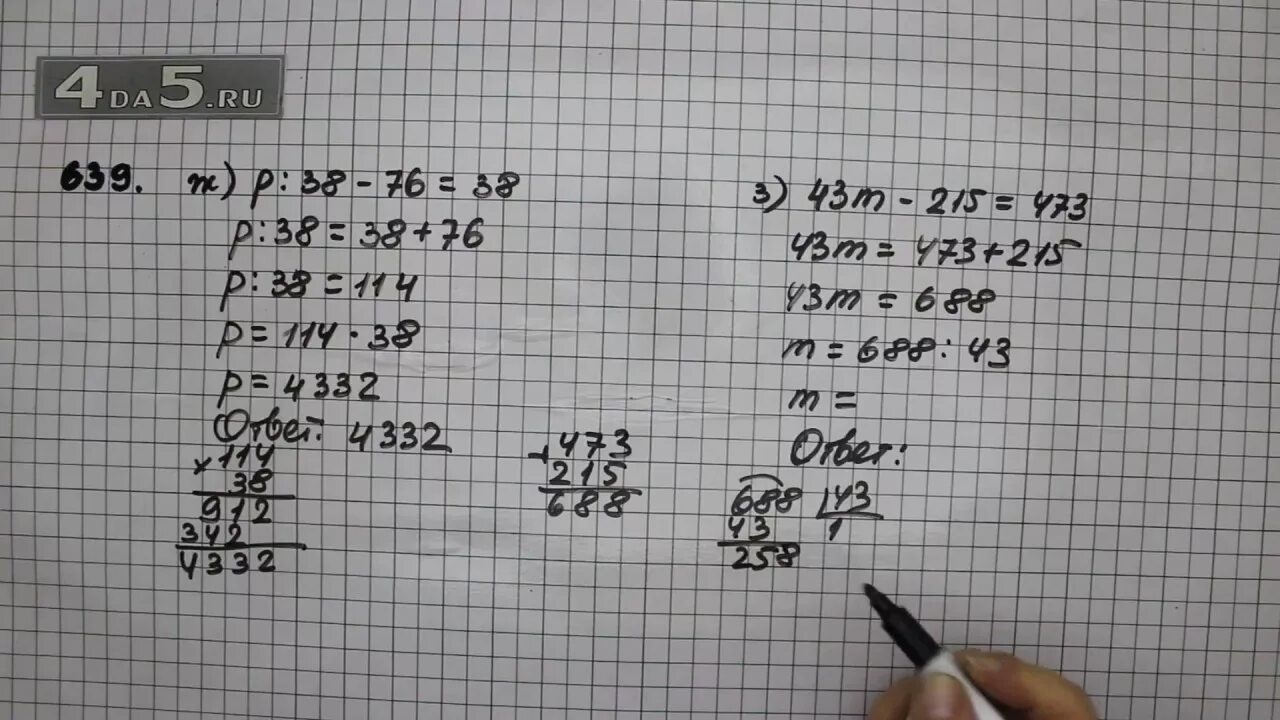 4DA5.RU
639. ж) p : 38 - 76 = 38
p : 38 = 38 + 76
p : 38 = 114
p = 114 · 38
p = 4332
Ответ: 4332
× 114
38
912
342
4332
+ 473
215
688
з) 43m - 215 = 473
43m = 473 + 215
43m = 688
m = 688 : 43
m =
Ответ:
688 | 43
43 1
258